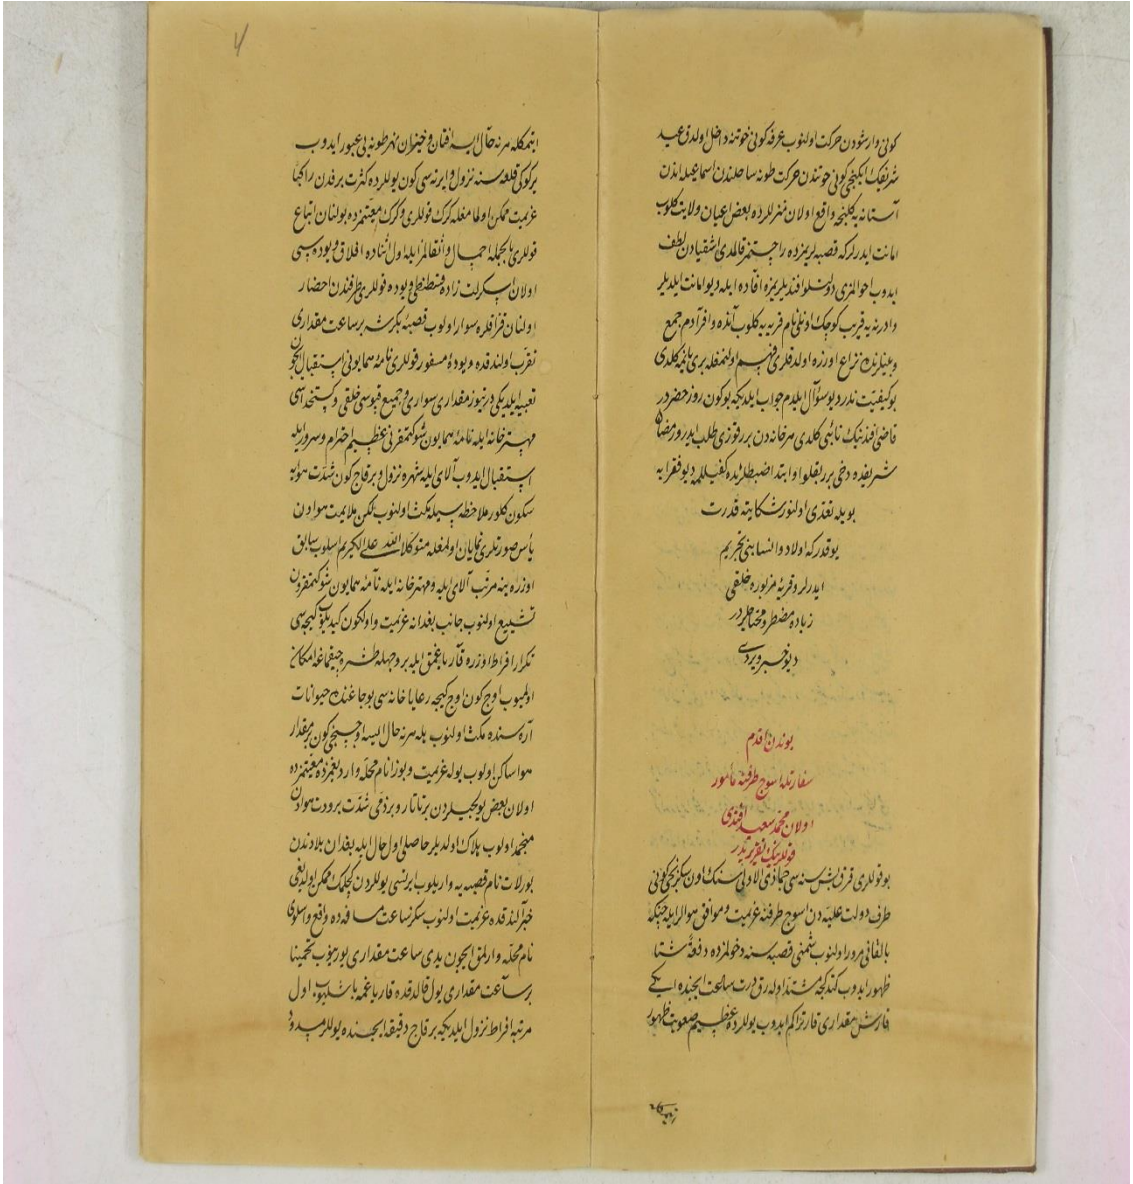 كونى وارشودن حركت اولنوب عرفه كونى خوتنه داخل اولدق عيد
شريفك ايكنجى كونى خوتندن حركت طونه ساحلندن اسماعيله اندن
آستانه يه كلنجه واقع اولان منزللرده بعض اعيان ولايت كلوب
امانت ايدرلر كه قصبه لريمزده راحتمز قالمدى اشقيادن لطف
ايدوب احوالمزى دولتلو افنديلريمزه افاده ايله ديو امانت ايلديلر
وادرنه يه قريب كوچك نام قريه يه كلوب آنده وافر آدم جمع
وبينلرنده نزاع اوزره اولدقلرى فهم اولنمغله برى يانمه كلدى
بو كيفيت ندر ديو سؤال ايلدم جواب ايلديكه بوكون روز حضردر
قاضى افندينك نائبى كلدى هر خانه دن برر قوزى طلب ايدر رمضان
شريفده دخى برر ديو فقرايه
بويله تعدى اولنور شكايته قدرت
يوقدر كه اولاد وانسابنى
ايدرلر دو قريه مزبوره خلقى
زياده مضطر ومحتاجلردر
ديو خبر ويردى
بوندن اقدم
سفارتله اسوج طرفنه مأمور
اولان محمد سعيد افندى
قوللرينك تقريريدر
بو قوللرى قرق بش سنه سى جماذى الاولى سنك اون سكزنجى كونى
طرف دولت عليه دن اسوج طرفنه عزيمت وموافق هوالر ايله چنكه
بالقانى مرور اولنوب شمنى قصبه سنه دخولمزده دفعةً شتا
ظهور ايدوب كتدكجه مشتد اوله رق درت ساعت ايچنده ايكى
قارش مقدارى قار تراكم ايدوب يوللرده عظيم صعوبت ظهور
ايتمكله
ايتمكله هر نه حال ايسه افتان وخيزان نهر طونه يى عبور ايدوب
يركوكى قلعه سنه نزول وايرته سى كون يوللرده كثرت برفدن راكبا
عزيمت ممكن اولمامغله كرك قوللرى وكرك معيتمزده بولنان اتباع
قوللرى بالجمله احمال واثقالمز ايله اول اثناده افلاق ويوده سى
اولان اسكرلت زاده قسطنطى ويوده قوللرى طرفندن احضار
اولنان قزاقلره سوار اولوب قصبهٔ بكرشه بر ساعت مقدارى
تقرب اولندقده ويودهٔ مسفور قوللرى نامهٔ همايونى استقبال ايچون
تعبيه ايلديكى درتيوز مقدارى سوارى وجميع قپوسى خلقى وكتخداسى
مهترخانه ايله نامهٔ همايون شوكتمقرونى عظيم احترام وسرور ايله
استقبال ايدوب آلاى ايله شهره نزول وبر قاچ كون شدت هوايه
سكون كلور ملاحظه سيله مكث اولنوب لكن ملايمت هوادن
يأس صورتلرى نمايان اولمغله متوكلا على الله الكريم اسلوب سابق
اوزره ينه مرتب آلاى ايله ومهترخانه ايله نامهٔ همايون شوكتمقرون
تشييع اولنوب جانب بغدانه عزيمت واولكون كيديلوب كيجه سى
تكرار افراط اوزره قار ياغمق ايله بر وجهله طشره چيقمغه امكان
اولميوب اوچ كون اوچ كيجه رعايا خانه سى بوجاغنده حيوانات
آره سنده مكث اولنوب يله هر نه حال ايسه اوچنجى كون بر مقدار
هوا ساكن اولوب يوله عزيمت وبوزا نام محله وارديغمزده معيتمزده
اولان بعض يولجيلردن بر تاتار وبر ذمى شدت برودت هوادن
منجمد اولوب هلاك اولديلر حاصلى اول حال ايله بغدان بلادندن
بورلات نام قصبه يه واريلوب ايرتسى يوللردن كچلمك ممكن اولديغى
خبر آلندقده عزيمت اولنوب سكز ساعت مسافه ده واقع واسلوى
نام محله وارلمق ايچون يدى ساعت مقدارى يورينوب تخمينا
بر ساعت مقدارى يول قالدقده قار ياغمه باشليوب اول
مرتبه افراط نزول ايلديكه بر قاچ دقيقه ايچنده يوللر مسدود